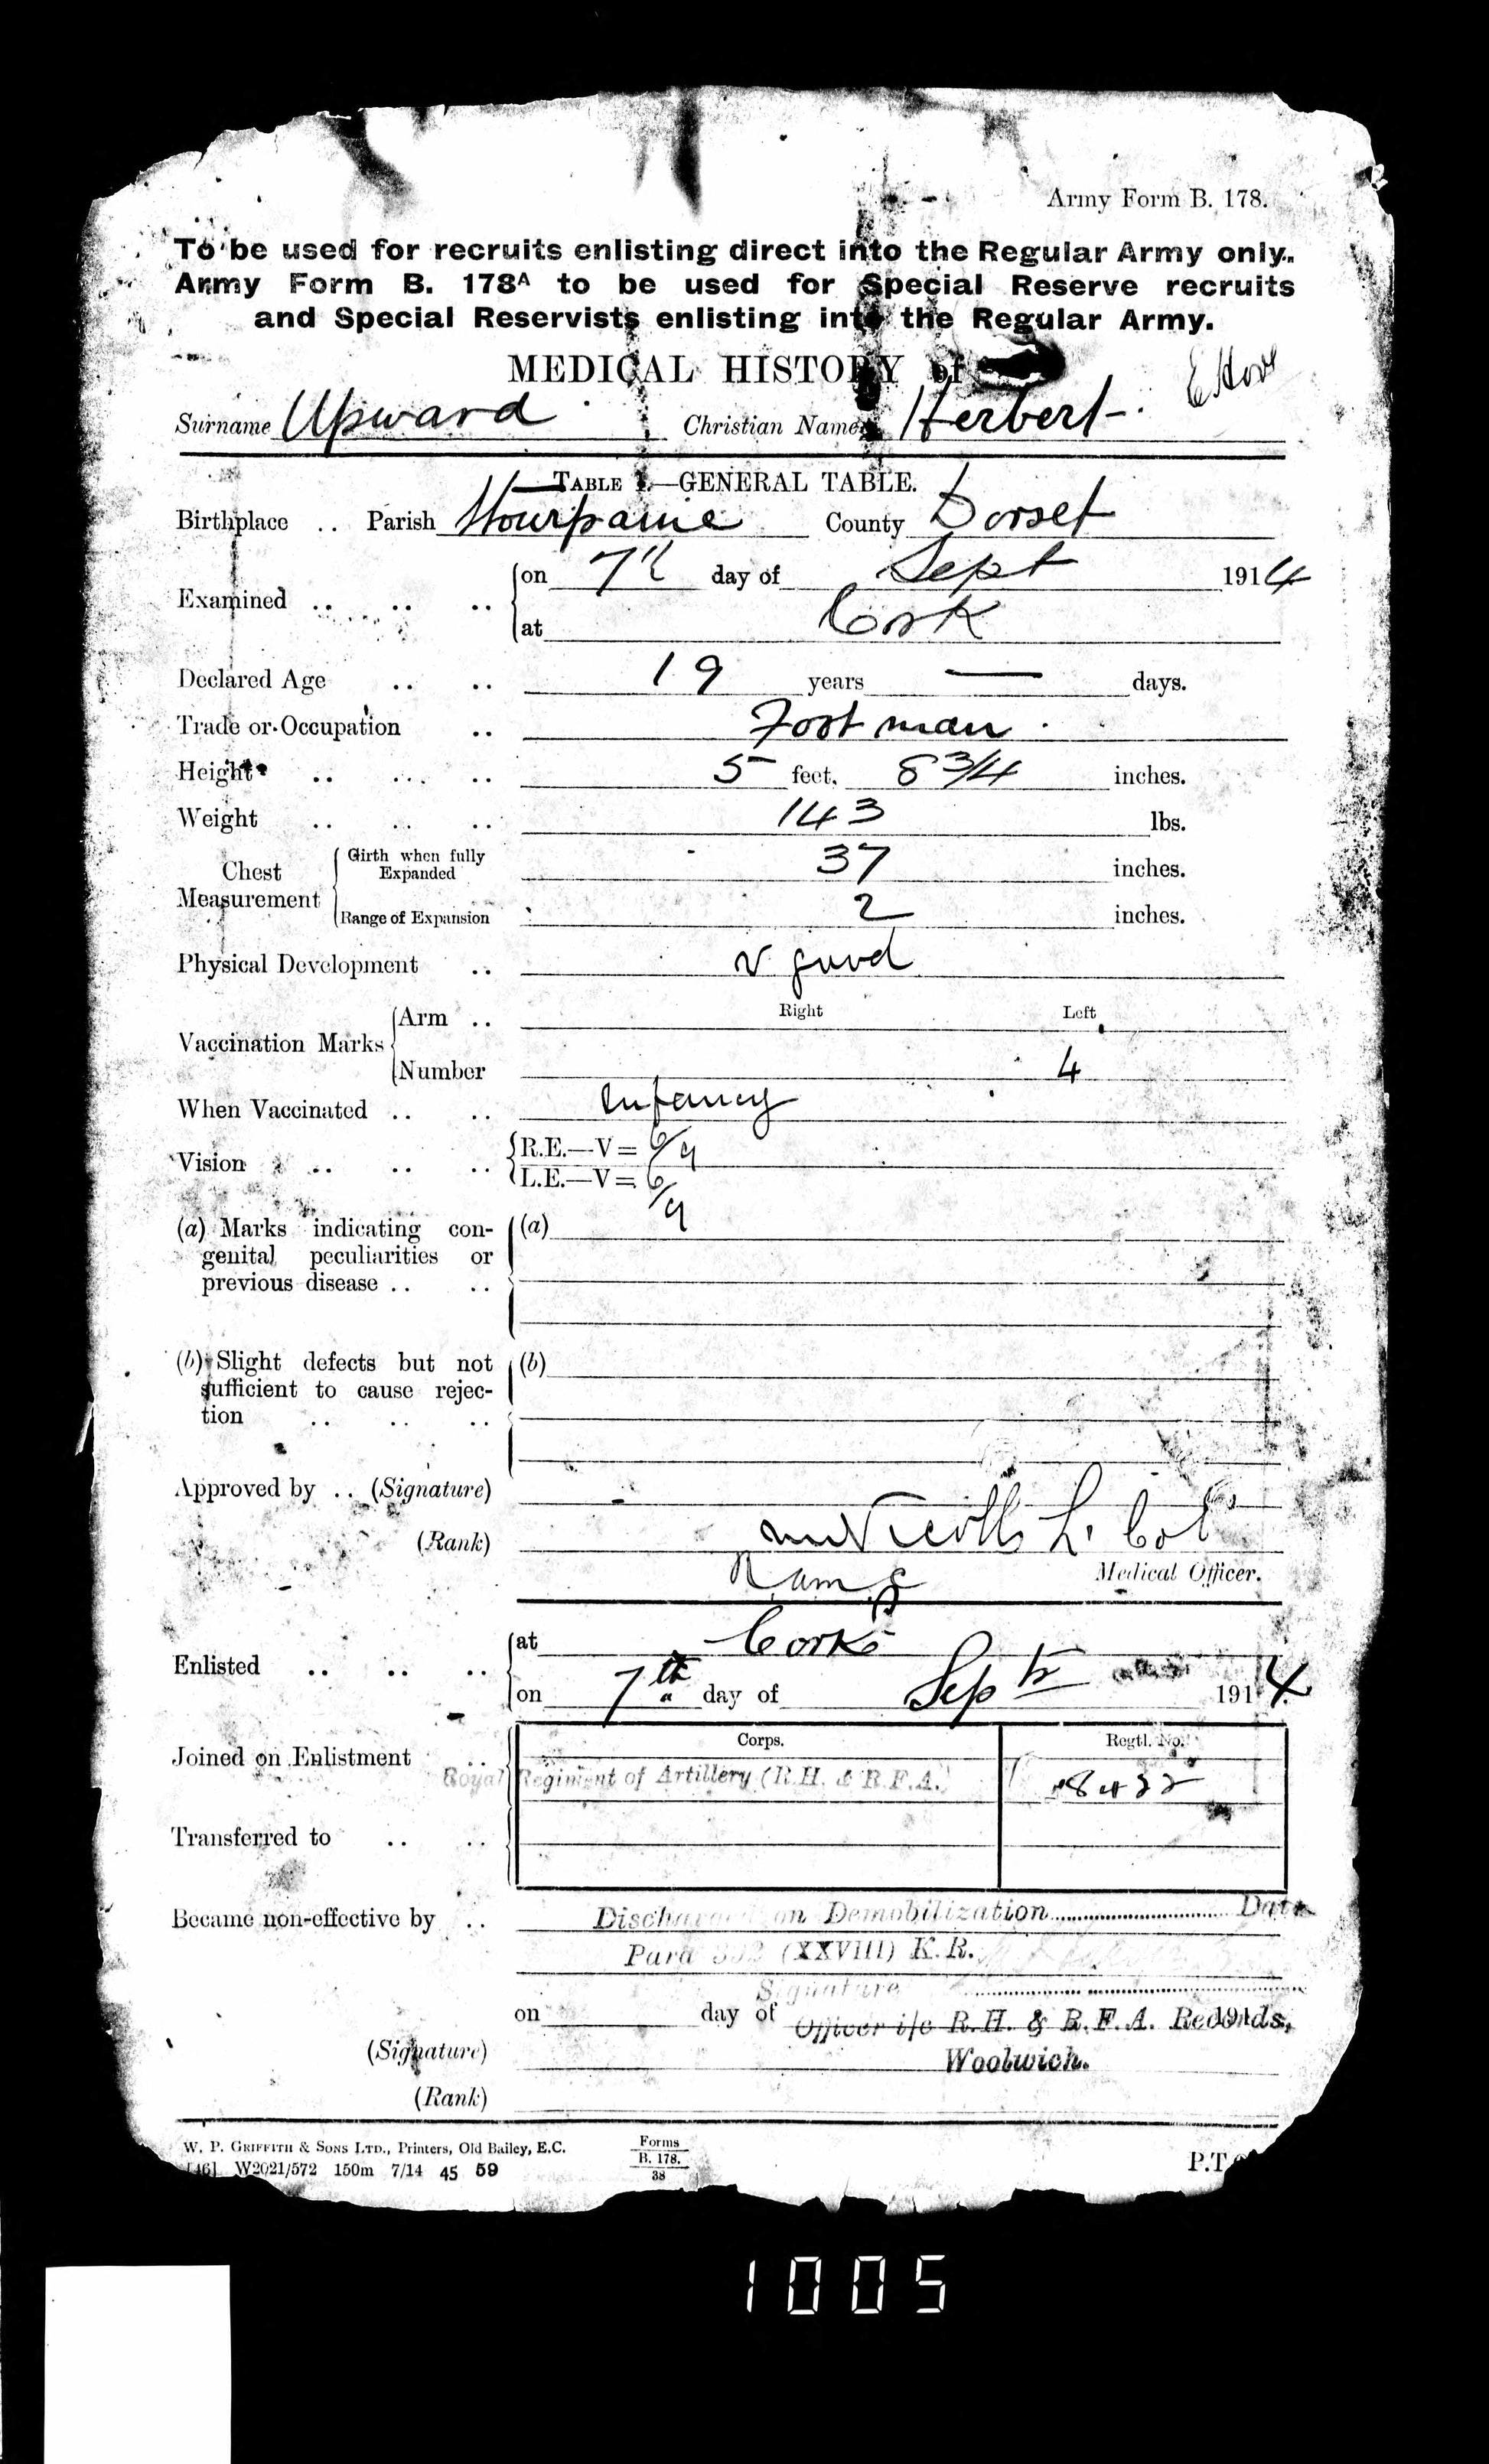 Army Form B. 178.
To be used for recruits enlisting direct into the Regular Army only.
Army Form B. 178A to be used for Special Reserve recruits
and Special Reservists enlisting into the Regular Army.
MEDICAL HISTORY of
Surname Upward Christian Name Herbert
TABLE I.—GENERAL TABLE.
Birthplace .. Parish Stourpaine County Dorset
Examined .. .. .. on 7th day of Sept 1914
at Cork
Declared Age .. .. 19 years — days.
Trade or Occupation .. Footman
Height .. .. .. 5 feet, 8 3/4 inches.
Weight .. .. .. 143 lbs.
Chest Measurement Girth when fully Expanded 37 inches.
Range of Expansion 2 inches.
Physical Development .. v good
Vaccination Marks Arm .. Right Left
Number 4
When Vaccinated .. .. Infancy
Vision .. .. .. R.E.—V= 6/9
L.E.—V= 6/9
(a) Marks indicating con- (a)
genital peculiarities or
previous disease .. ..
(b) Slight defects but not (b)
sufficient to cause rejec-
tion .. .. ..
Approved by .. (Signature)
(Rank) Lt Col
RAMC Medical Officer.
Enlisted .. .. .. at Cork
on 7th day of Sept 1914
Corps. Regtl. No.
Joined on Enlistment .. Royal Regiment of Artillery (R.H. & R.F.A.)
Transferred to .. ..
Became non-effective by .. Discharged on Demobilization Date
Para 392 (XXVIII) K.R.
Signature
on day of Officer i/c R.H. & R.F.A. Records,
(Signature) Woolwich.
(Rank)
W. P. GRIFFITH & SONS LTD., Printers, Old Bailey, E.C. Forms
[46] W2021/572 150m 7/14 45 59 B. 178. P.T.
38
1005